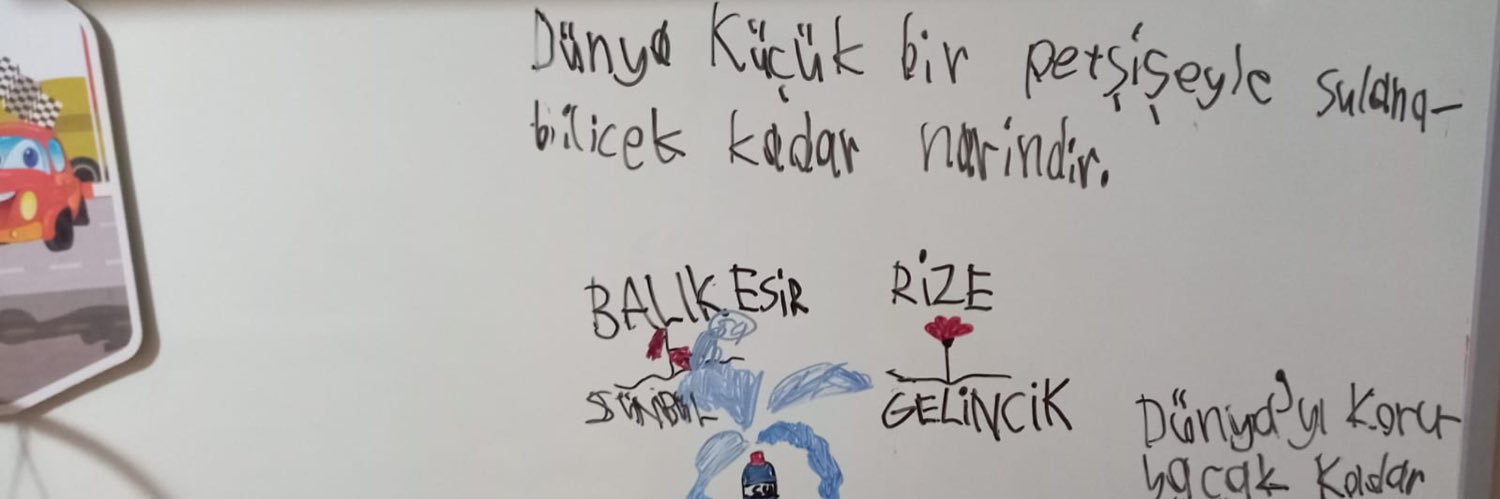 Dünya Küçük bir petşişeyle sulana-
bilicek kadar narindir.
BALIKESİR
RİZE
SÜNBÜL
GELİNCİK
Dünya'yı Korur
kadar
SU